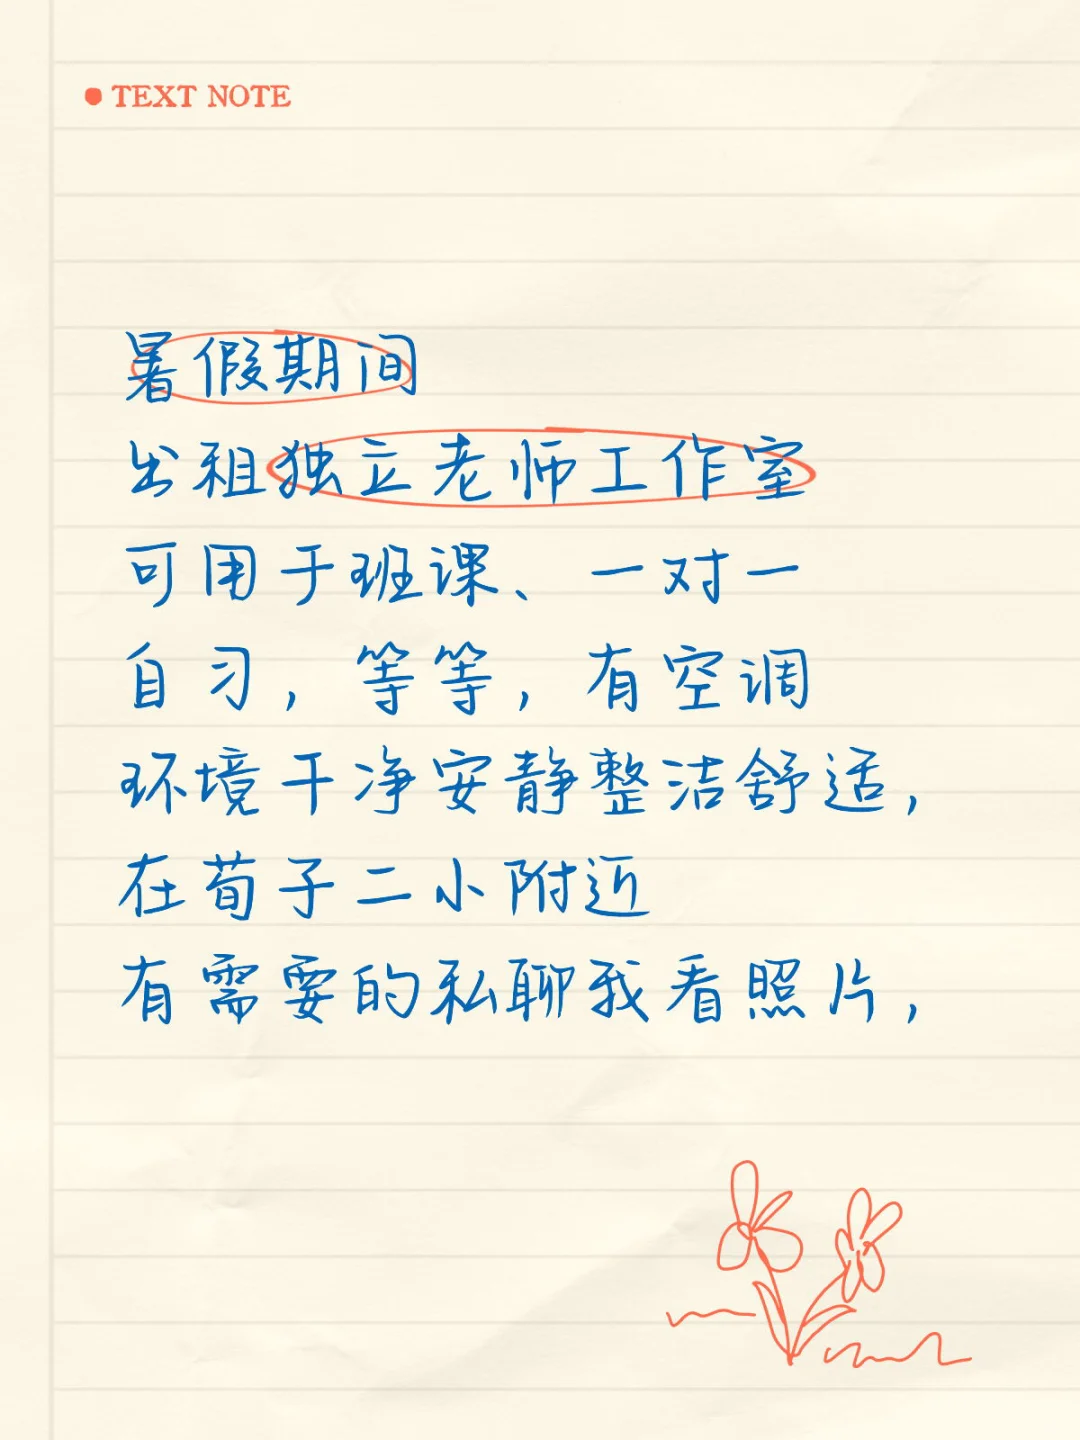 TEXT NOTE
暑假期间
出租独立老师工作室
可用于班课、一对一
自习，等等，有空调
环境干净安静整洁舒适，
在荀子二小附近
有需要的私聊我看照片，